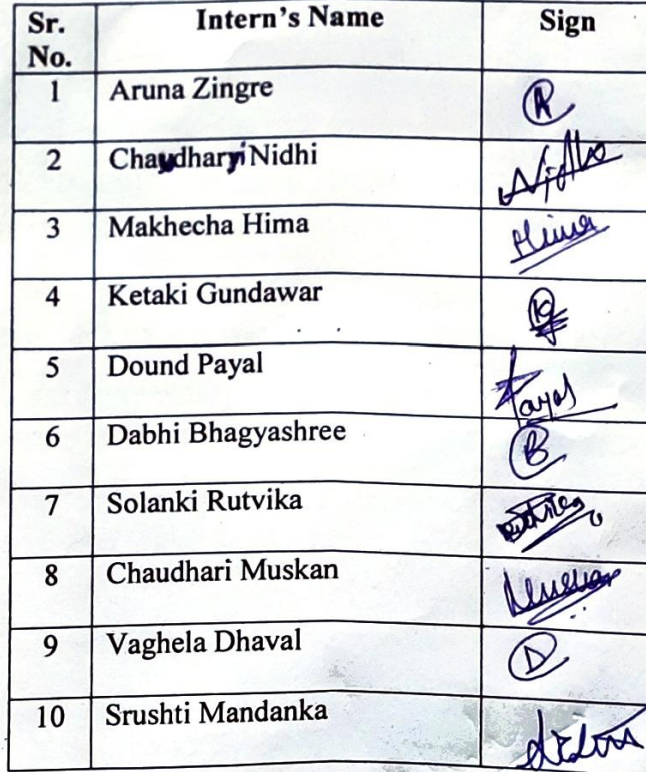 Sr. No. Intern's Name Sign
1 Aruna Zingre A
2 Chaudhari Nidhi Nidhi
3 Makhecha Hima Hima
4 Ketaki Gundawar
5 Dound Payal Payal
6 Dabhi Bhagyashree B
7 Solanki Rutvika
8 Chaudhari Muskan
9 Vaghela Dhaval D
10 Srushti Mandanka